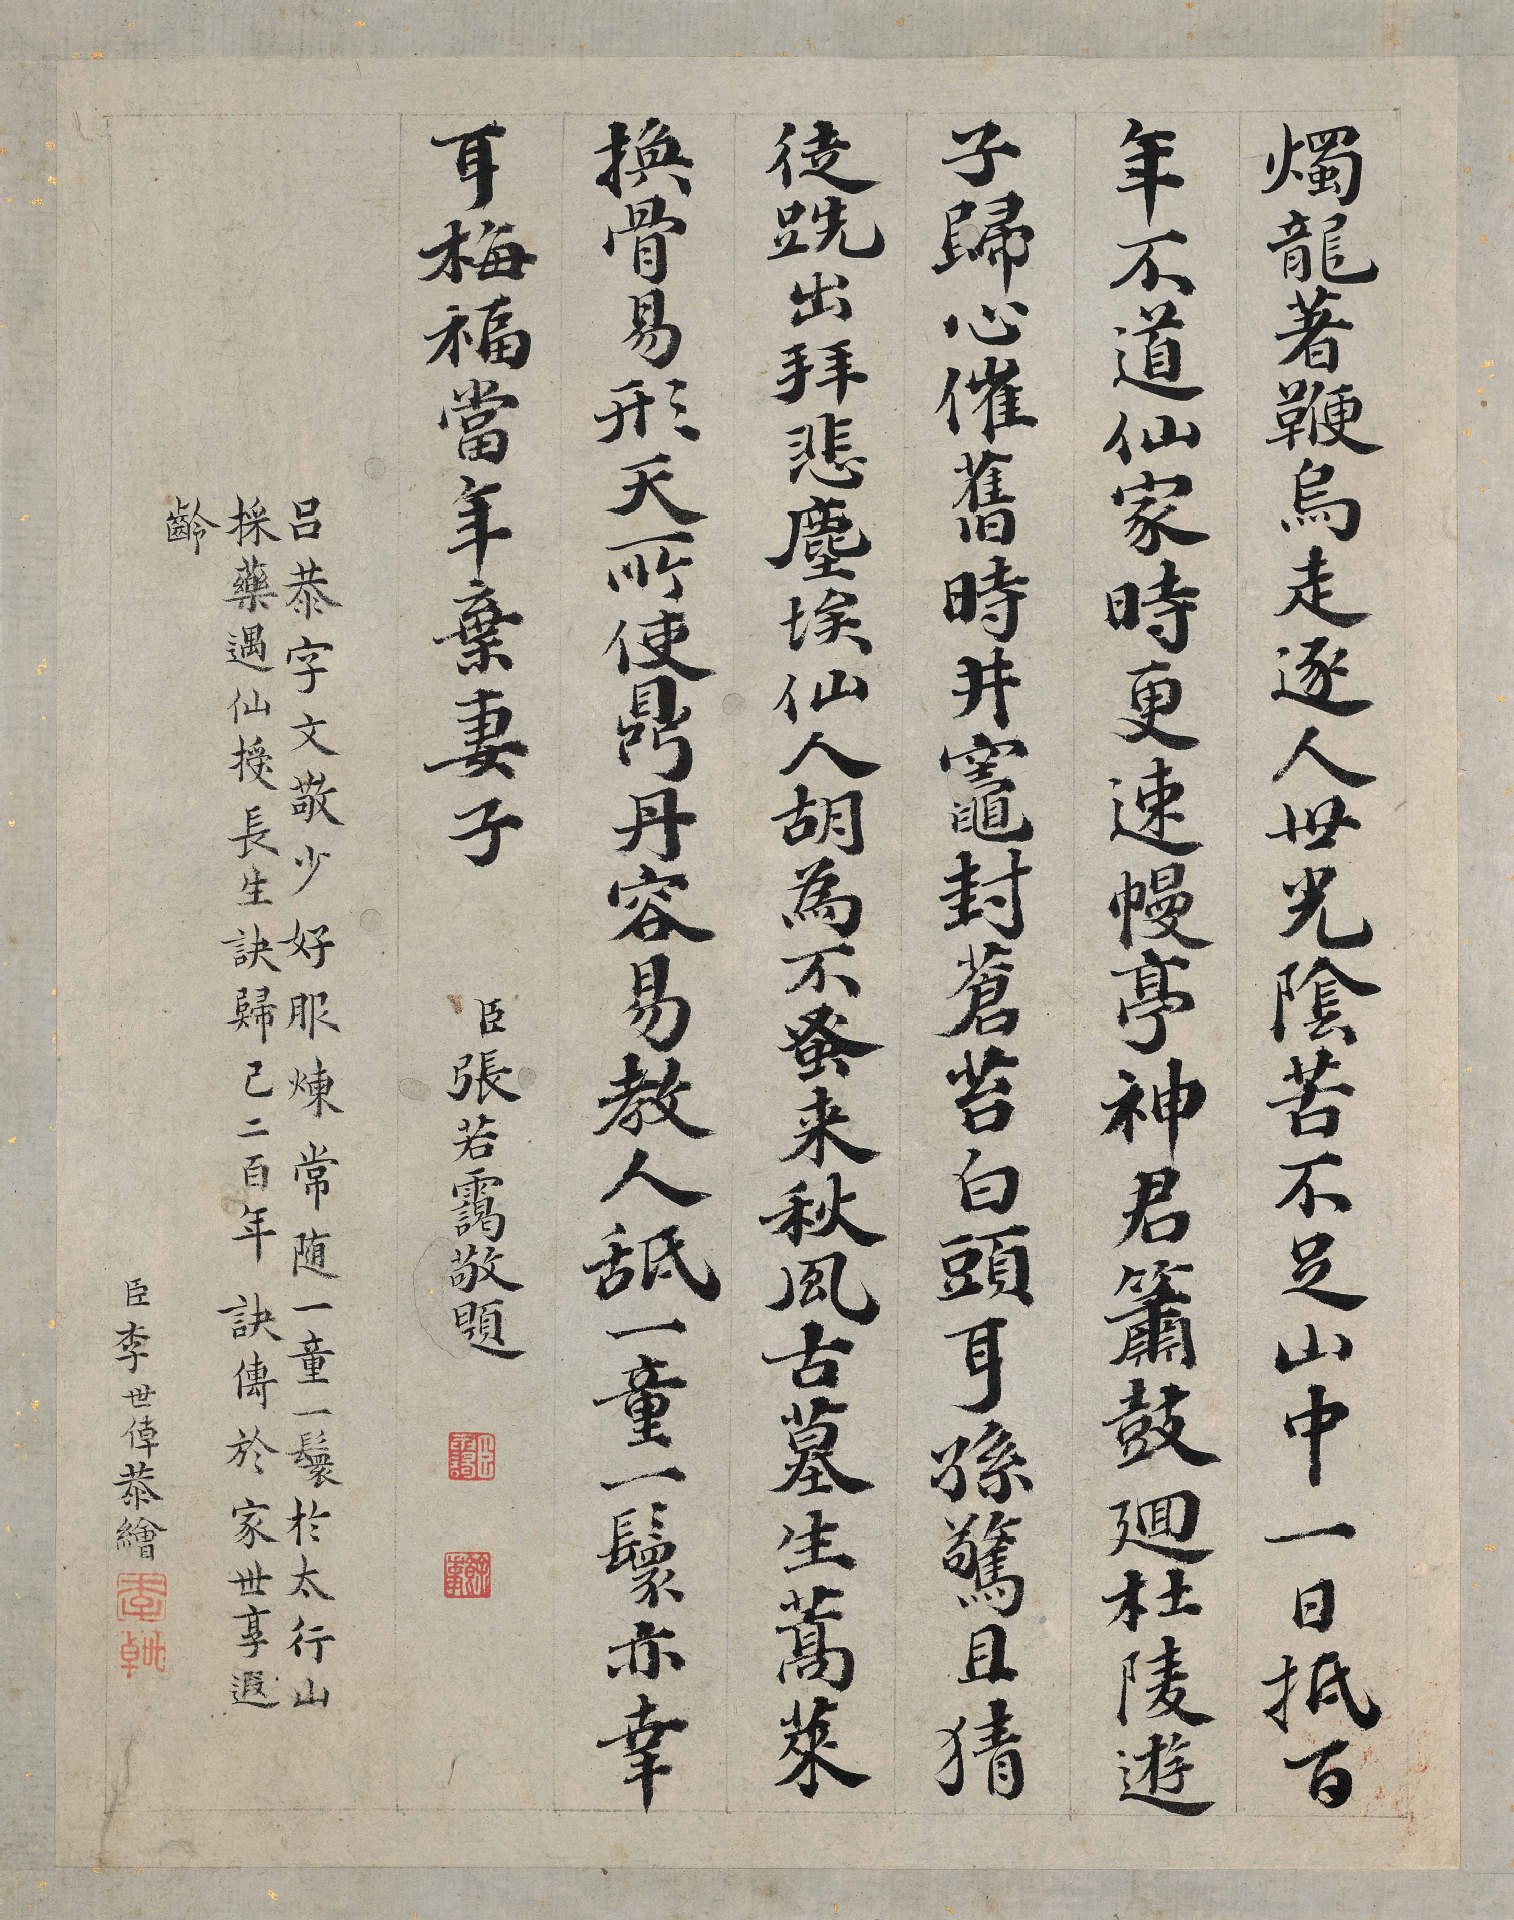 燭龍著鞭烏走逐人世光陰苦不足山中一日抵百
年不道仙家時更速幔亭神君簫鼓廻杜陵遊
子歸心催舊時井竈封蒼苔白頭耳孫驚且猜
徒跣出拜悲塵埃仙人胡為不蚤来秋風古墓生蒿萊
換骨易形天所使鼎丹容易教人舐一童一鬟亦幸
耳梅福當年棄妻子
臣張若靄敬題
吕恭字文敬少好服煉常随一童一鬟於太行山
採藥遇仙授長生訣歸已二百年訣傳於家世享遐
齡
臣李世倬恭繪